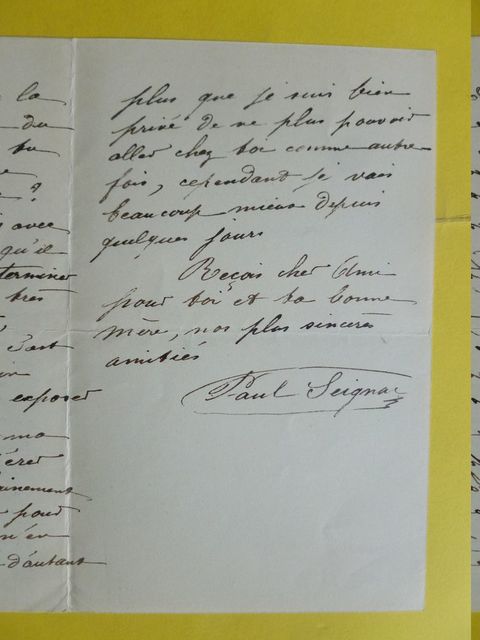 la
du
tu
?
avec
qu'il
terminer
très
exposer
ma
pour
n'en
d'autant
plus que je suis bien
privé de ne plus pouvoir
aller chez toi comme autre
fois, cependant je vais
beaucoup mieux depuis
quelques jours
Reçois cher Ami
pour toi et ta bonne
mère, nos plus sincères
amitiés
Paul Seignac